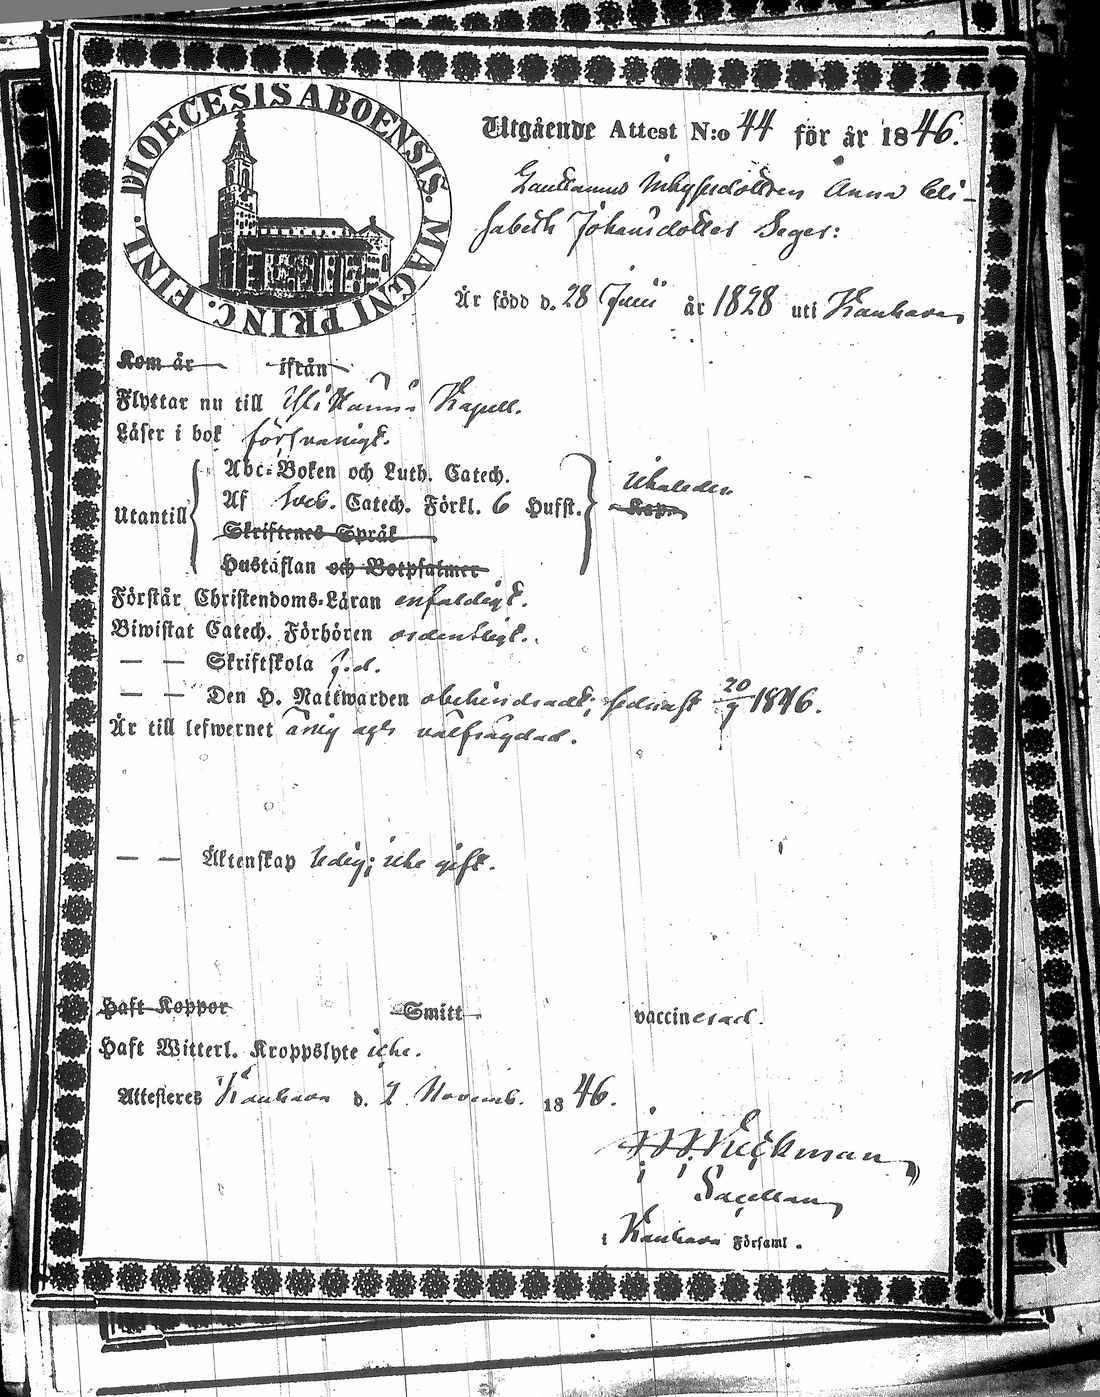 DIOECESIS ABOENSIS. MAGNI PRINC. FINL.
Utgående Attest N:o 44 för år 1846.
Inhysesdottren Anna Eli-
sabeth Johansdotter Seger:
Är född d. 28 Junii år 1828 uti Kauhava,
Kom år ifrån
Flyttar nu till Ylihärmä Kapell.
Läser i bok försvarligt.
Abc-Boken och Luth. Catech.
Utantill Af Sveb. Catech. Förkl. 6 Hufst.
Skriftenes Språk
Hustaflan och Botpsalmer
Kap.
Förstår Christendoms-Läran enfaldigt.
Biwistat Catech. Förhören ordentligt.
— — Skriftskola d.
— — Den H. Nattwarden obehindradt; sednast 20/9 1846.
Är till lefwernet ärlig och välfrägdad.
— — Äktenskap ledig; icke gift.
Haft Koppor Smitt vaccinerad.
Haft Witterl. Kroppslyte icke.
Attesteres Kauhava d. 2 Novemb. 1846.
Wegelius
Capellan,
i Kauhava Församl.